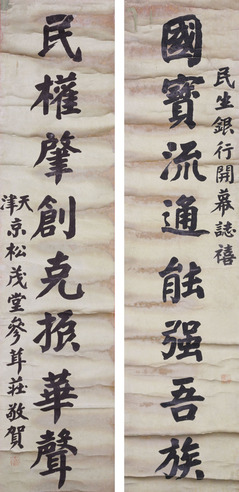 民生銀行開幕誌禧
國寶流通能强吾族
民權肇創克振華聲
天津京松茂堂參茸莊敬賀